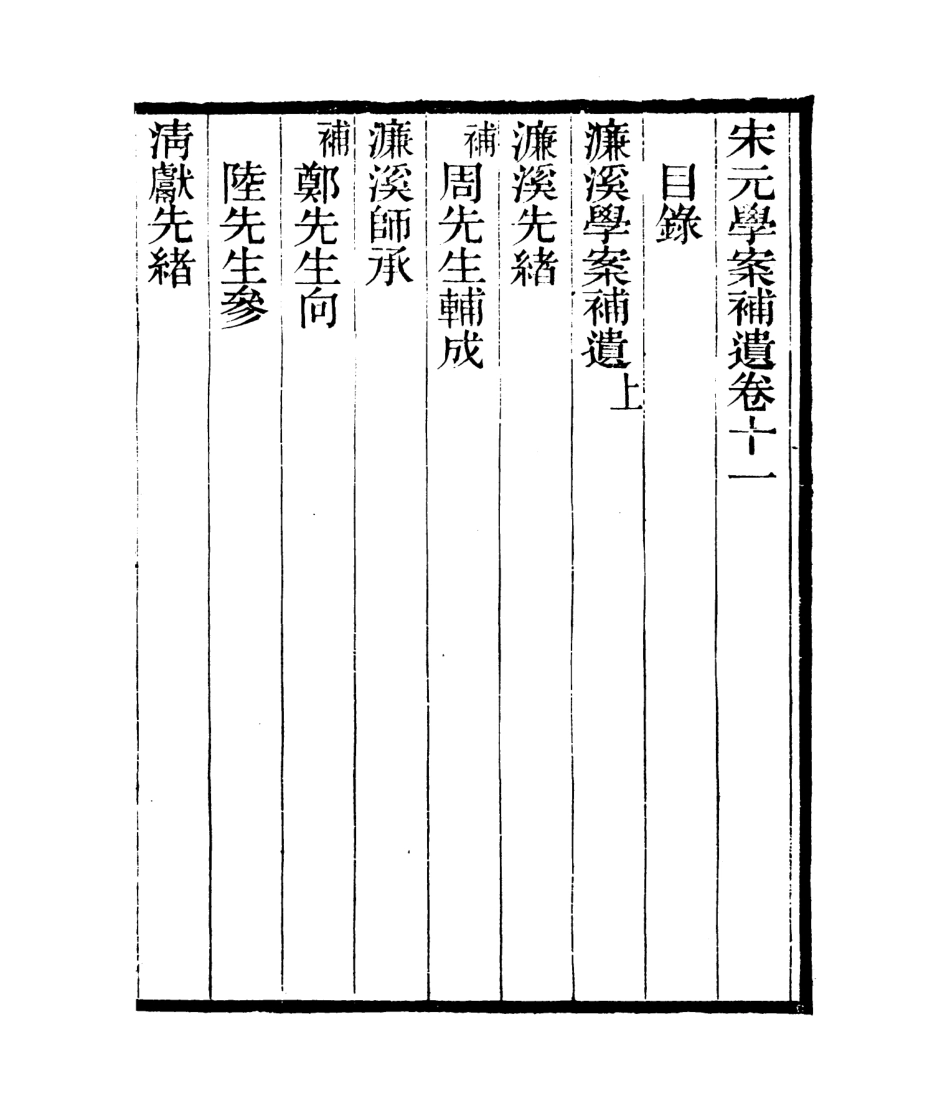 宋元學案補遺卷十一
目錄
濂溪學案補遺上
濂溪先緒
補周先生輔成
濂溪師承
補鄭先生向
陸先生參
清獻先緒